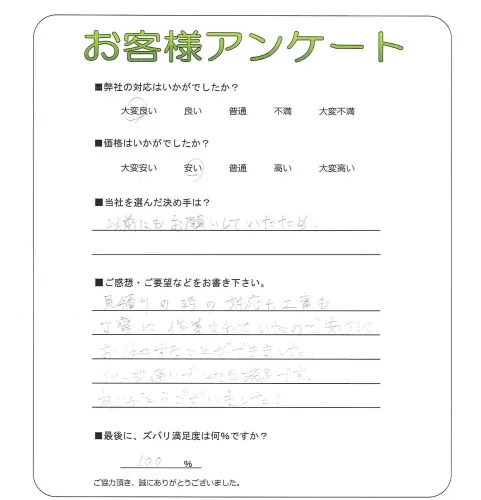 お客様アンケート
■弊社の対応はいかがでしたか？
大変良い 良い 普通 不満 大変不満
■価格はいかがでしたか？
大変安い 安い 普通 高い 大変高い
■当社を選んだ決め手は？
以前にもお願いしていたため。
■ご感想・ご要望などをお書き下さい。
見積りの時の対応も工事も
丁寧に作業されていたので安心して
お任せすることができました。
イメージ通りでとても満足です。
ありがとうございました！
■最後に、ズバリ満足度は何%ですか？
100 %
ご協力頂き、誠にありがとうございました。